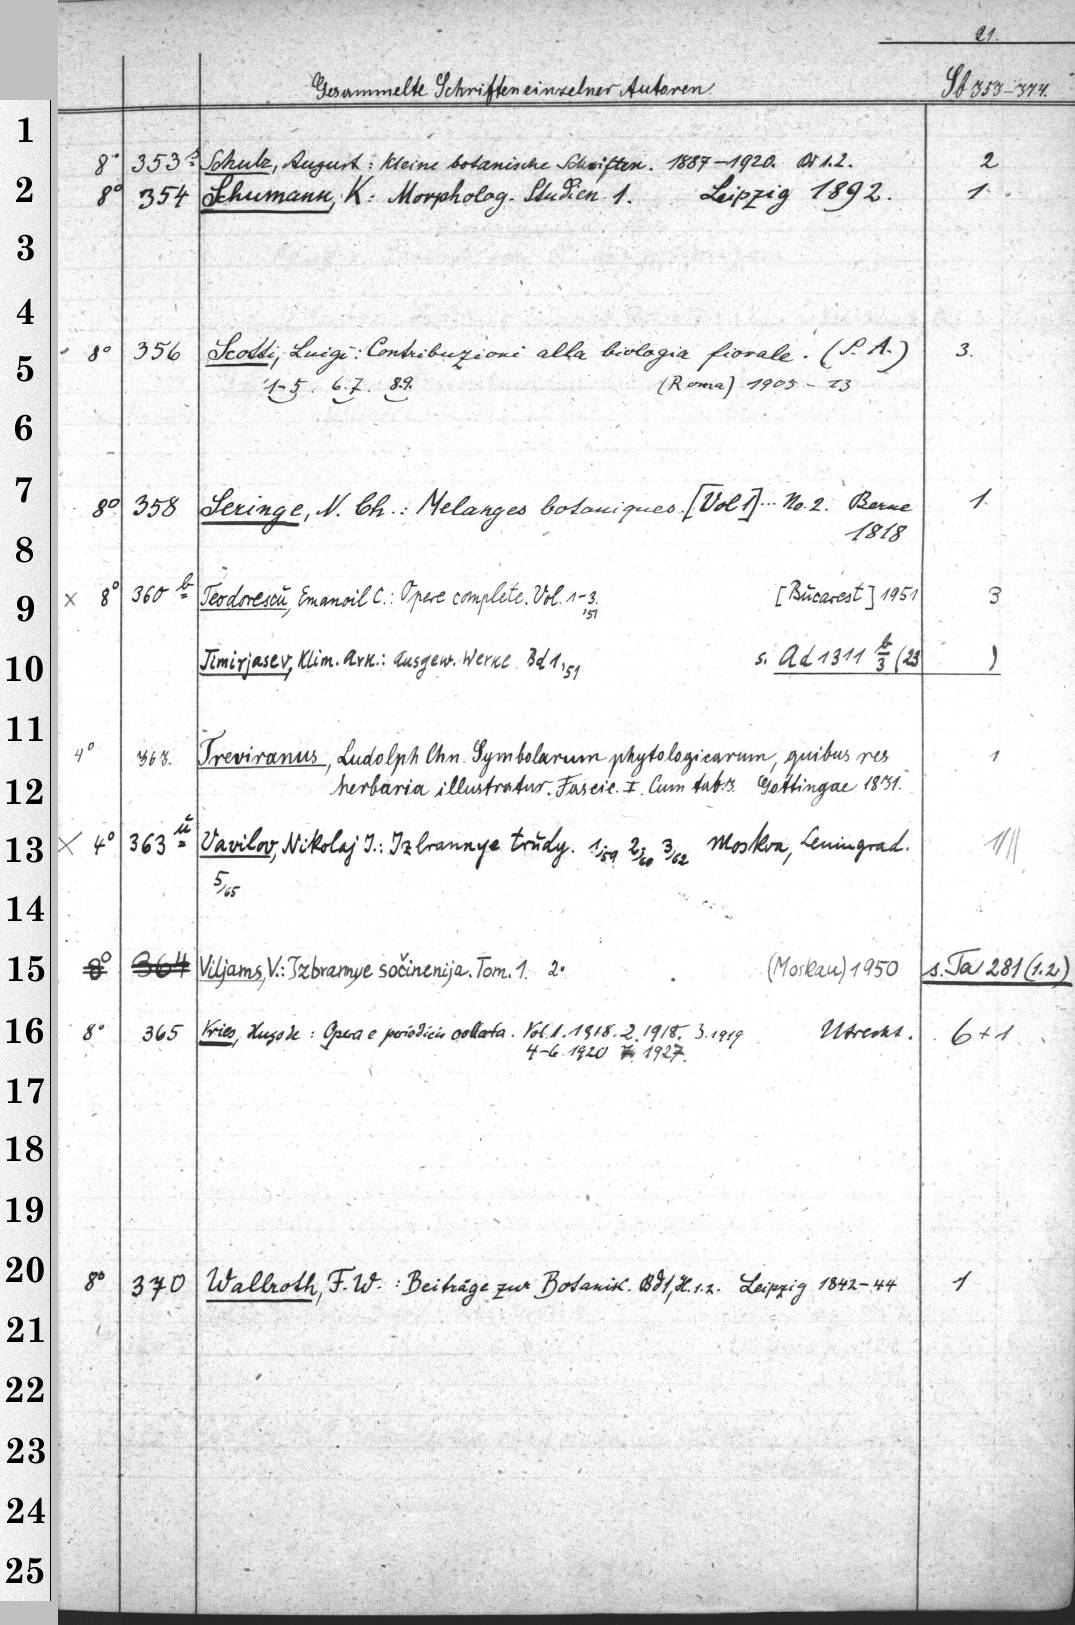 21.
Gesammelte Schriften einzelner Autoren Sb 353–374.
1
8° 353 Schulz, August: Kleine botanische Schriften. 1887–1920. Bd 1.2. 2
2 8° 354 Schumann, K: Morpholog. Studien 1. Leipzig 1892. 1
3
4
8° 356 Scotti, Luigi: Contribuzioni alla biologia fiorale. (S. A.) 3.
5 1–5. 6.7. 8.9. (Roma) 1905–13
6
7 8° 358 Seringe, N. Ch.: Melanges botaniques. [Vol 1] ... No. 2. Berne 1
1818
8
9 × 8° 360 b Teodorescŭ, Emanoil C.: Opere complete. Vol. 1–3. [Bŭcarest] 1951 3
'51
10 Timirjasev, Klim. Ark.: Ausgew. Werke Bd 1,'51 s. Ad 1311 b/3 (23)
11
4° 363. Treviranus, Ludolph Chn. Symbolarum phytologicarum, quibus res 1
12 herbaria illustratur. Fascic. I. Cum tab. 3. Gottingae 1831.
13 × 4° 363 ŭ Vavilov, Nikolaj I.: Izbrannye trŭdy. 1/59 2/60 3/62 Moskva, Leningrad. 1///
5/65
14
15 8° 364 Viljams, V.: Izbrannye sočinenija. Tom. 1. 2. (Moskau) 1950 s. Ta 281 (1.2)
16 8° 365 Vries, Hugo de: Opera e periodicis collata. Vol. 1. 1918. 2. 1918. 3. 1919 Utrecht. 6+1
4–6 1920 7. 1927.
17
18
19
20 8° 370 Wallroth, F. W.: Beiträge zur Botanik. Bd 1, H. 1.2. Leipzig 1842–44 1
21
22
23
24
25